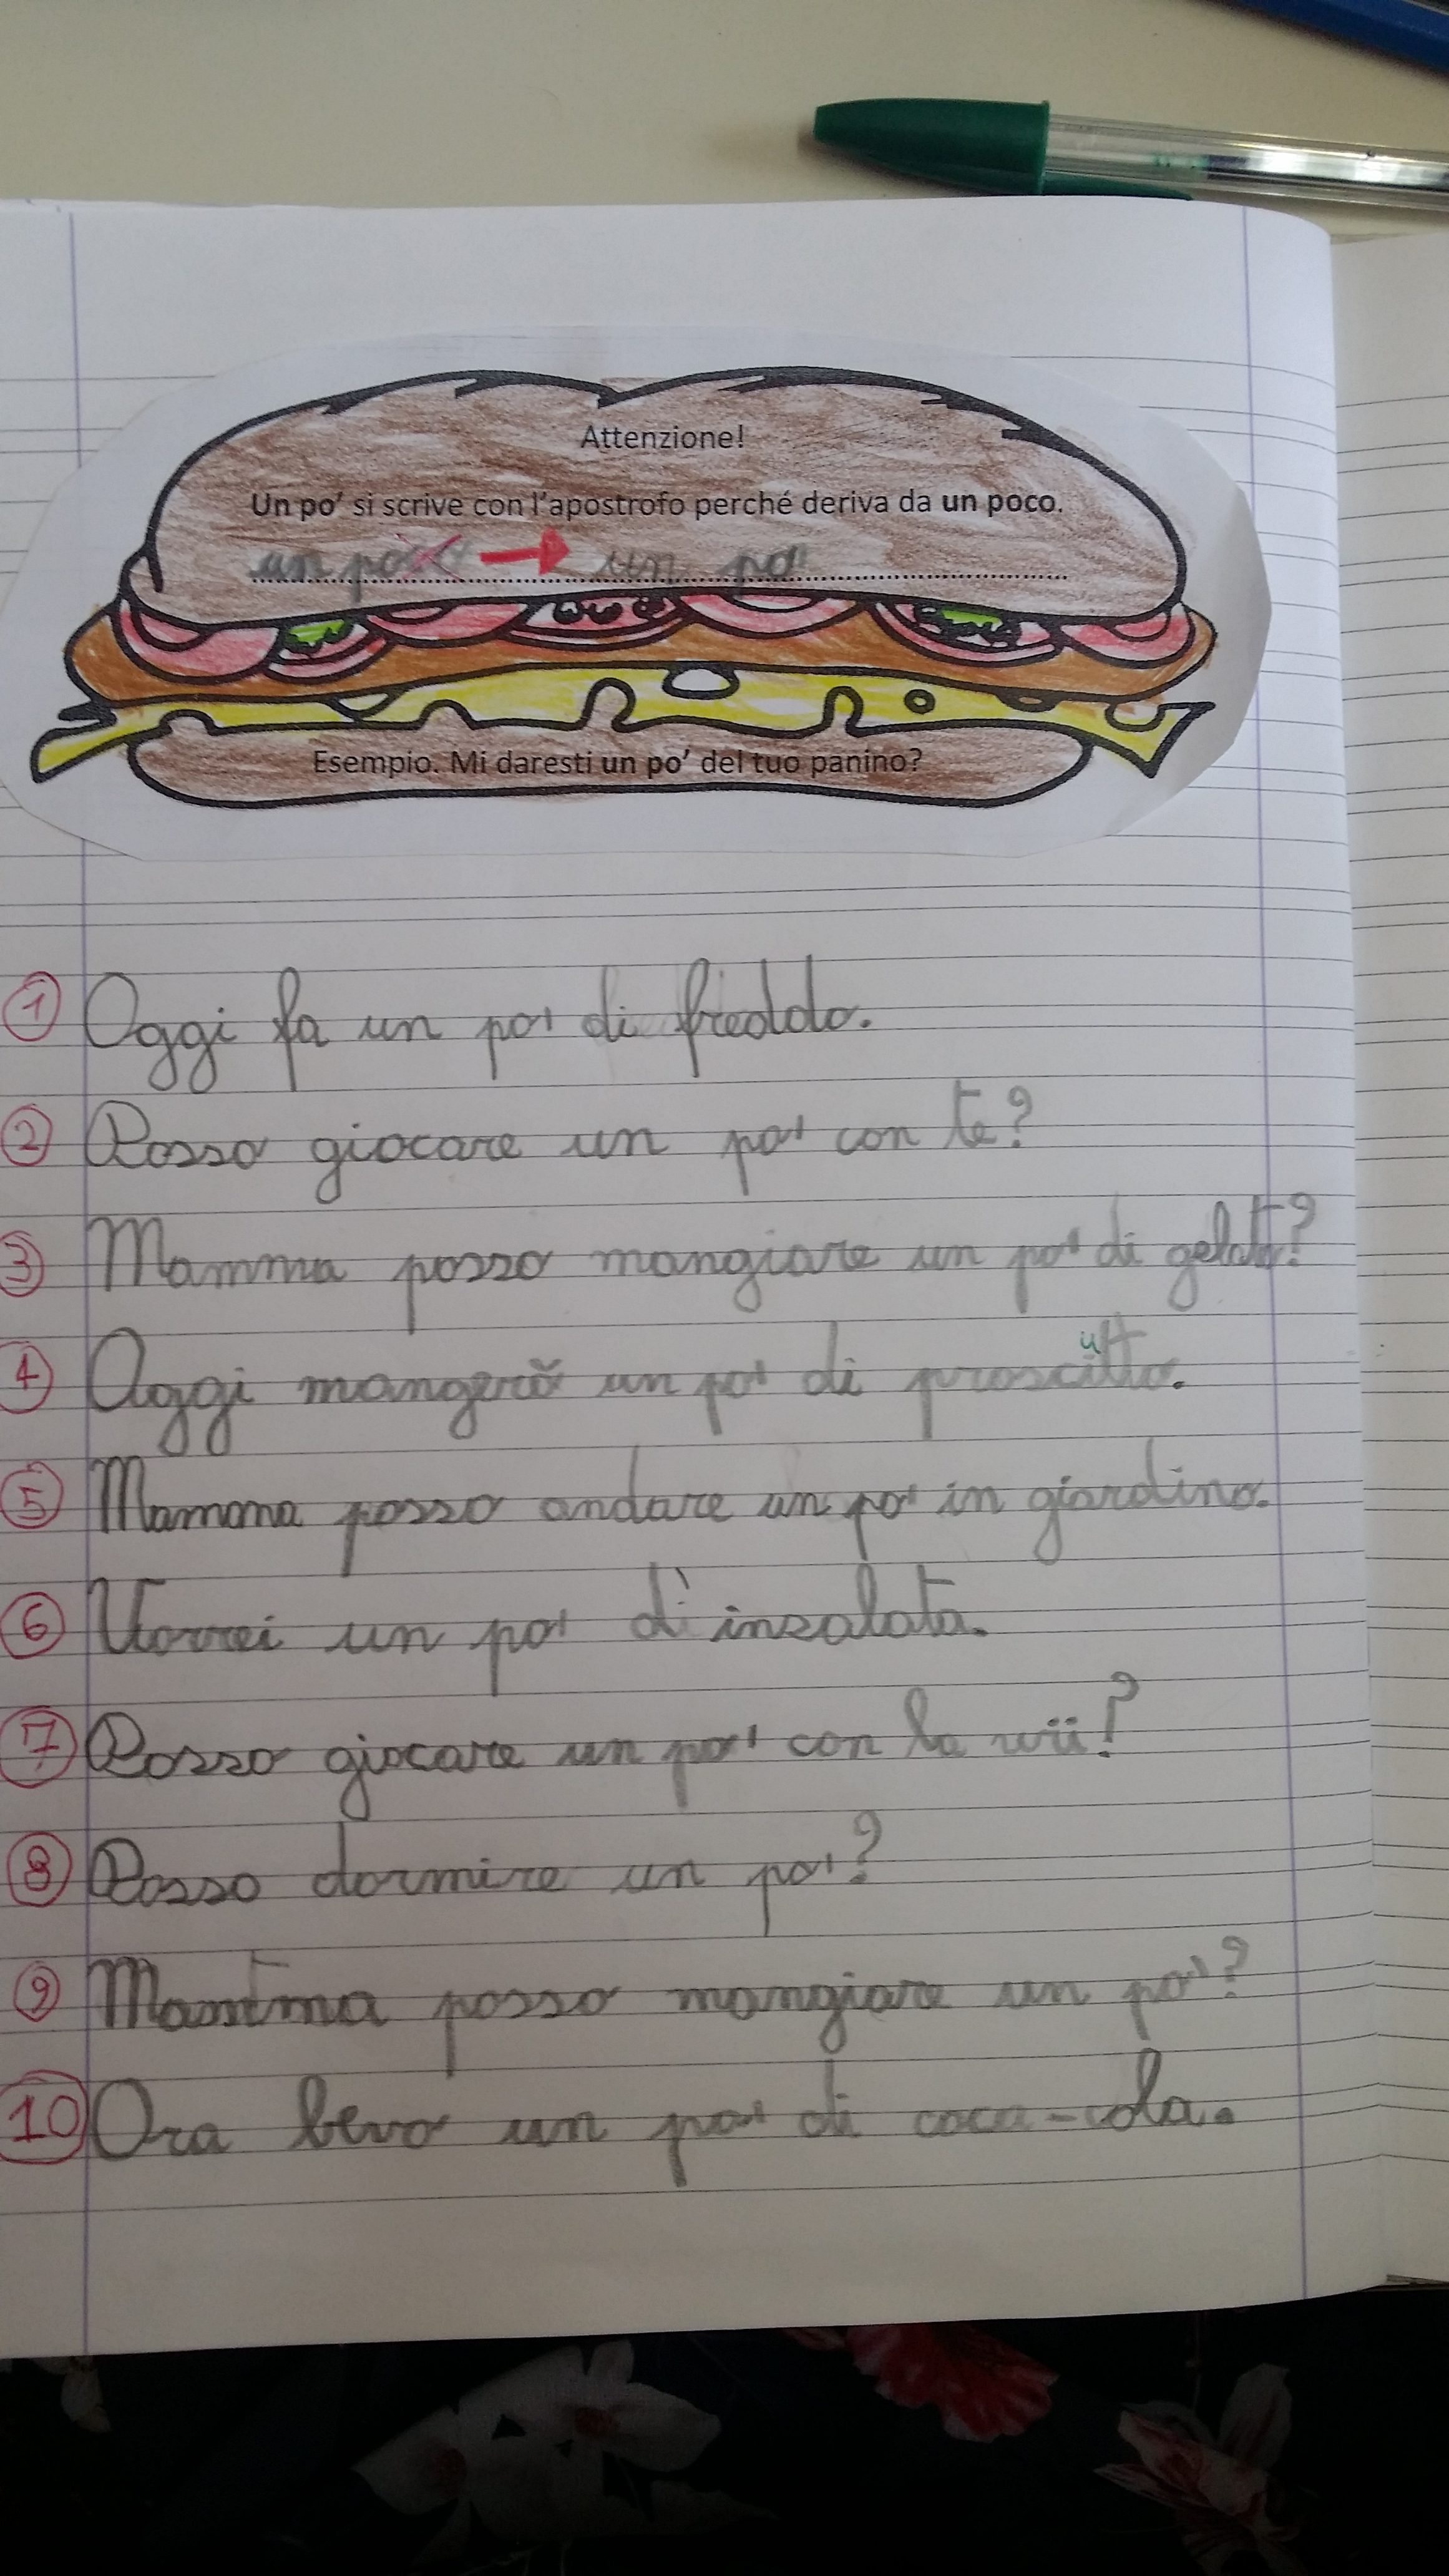 Attenzione!
Un po' si scrive con l'apostrofo perché deriva da un poco.
un poco → un po'
Esempio. Mi daresti un po' del tuo panino?
1 Oggi fa un po' di freddo.
2 Posso giocare un po' con te?
3 Mamma posso mangiare un po' di gelato?
4 Oggi mangerò un po' di prosciutto.
5 Mamma posso andare un po' in giardino.
6 Vorrei un po' di insalata.
7 Posso giocare un po' con la wii?
8 Posso dormire un po'?
9 Mamma posso mangiare un po'?
10 Ora bevo un po' di coca-cola.